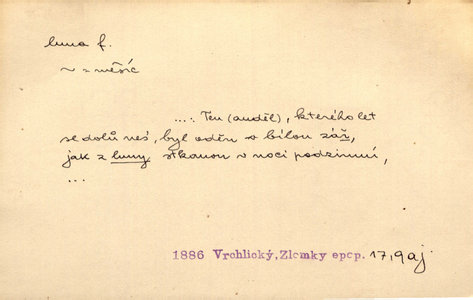 luna f.
~ = měsíc
...: Ten (anděl), kterého let
se dolů nes', byl oděn v bílou zář,
jak z luny stkanou v noci podzimní,
...
1886 Vrchlický, Zlomky epop. 17, 9 aj